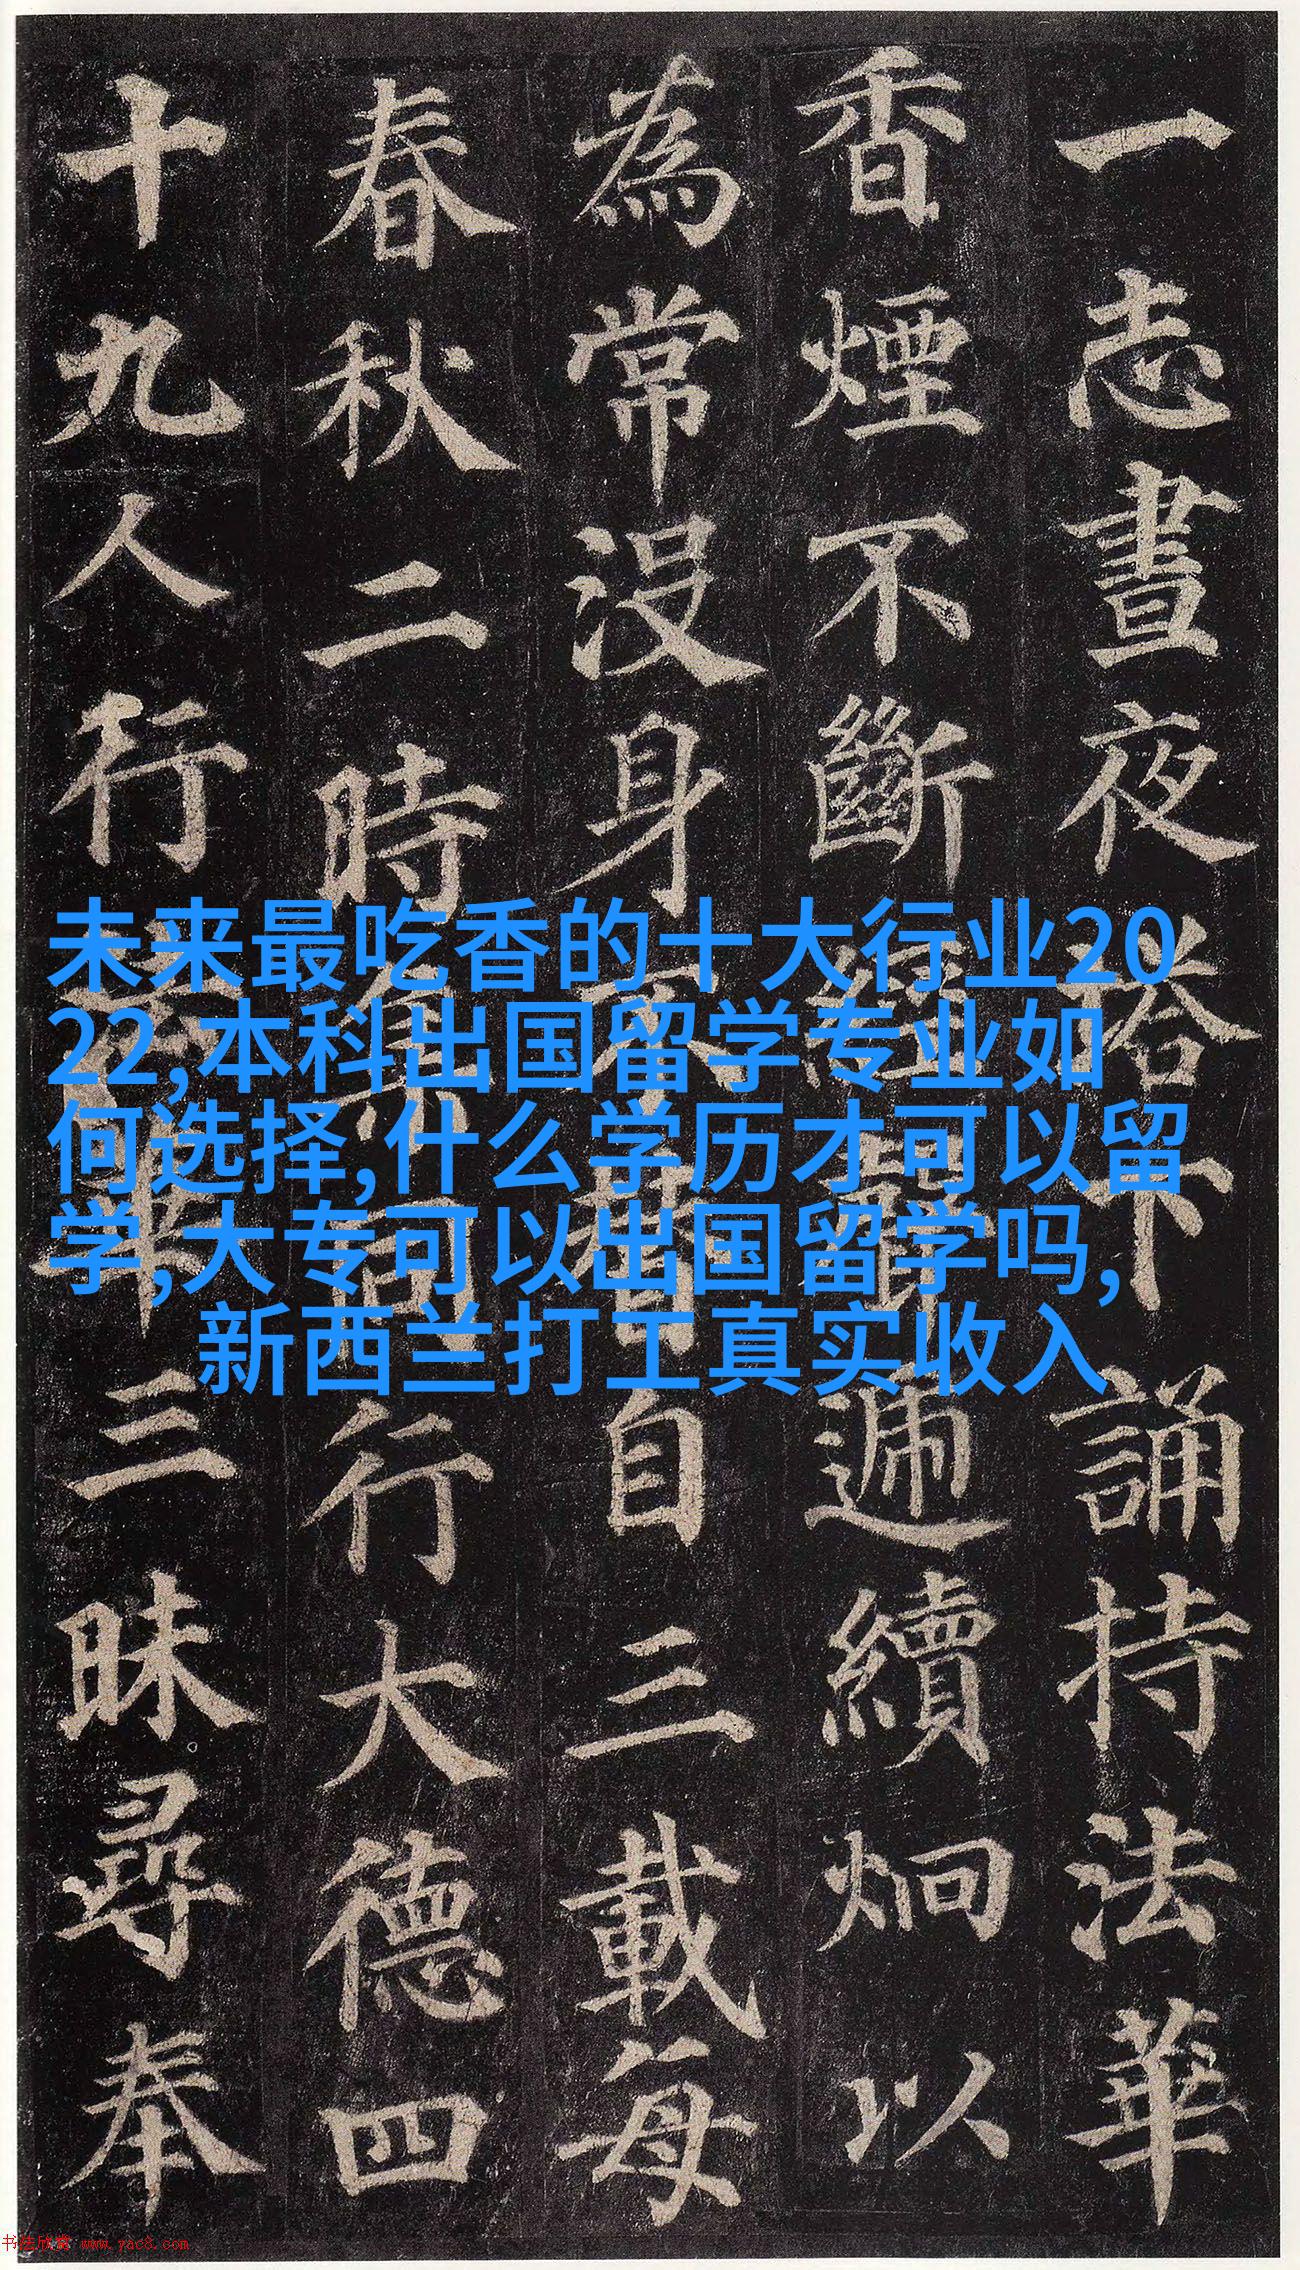 一志晝夜塔下誦持法華
香煙不斷經聲遞續炯以
為常沒身不替自三載每
春秋二時集同行大德四
十九人行法華三昧尋奉
未来最吃香的十大行业20
22,本科出国留学专业如
何选择,什么学历才可以留
学,大专可以出国留学吗,
新西兰打工真实收入
书法欣赏 www.yac8.com